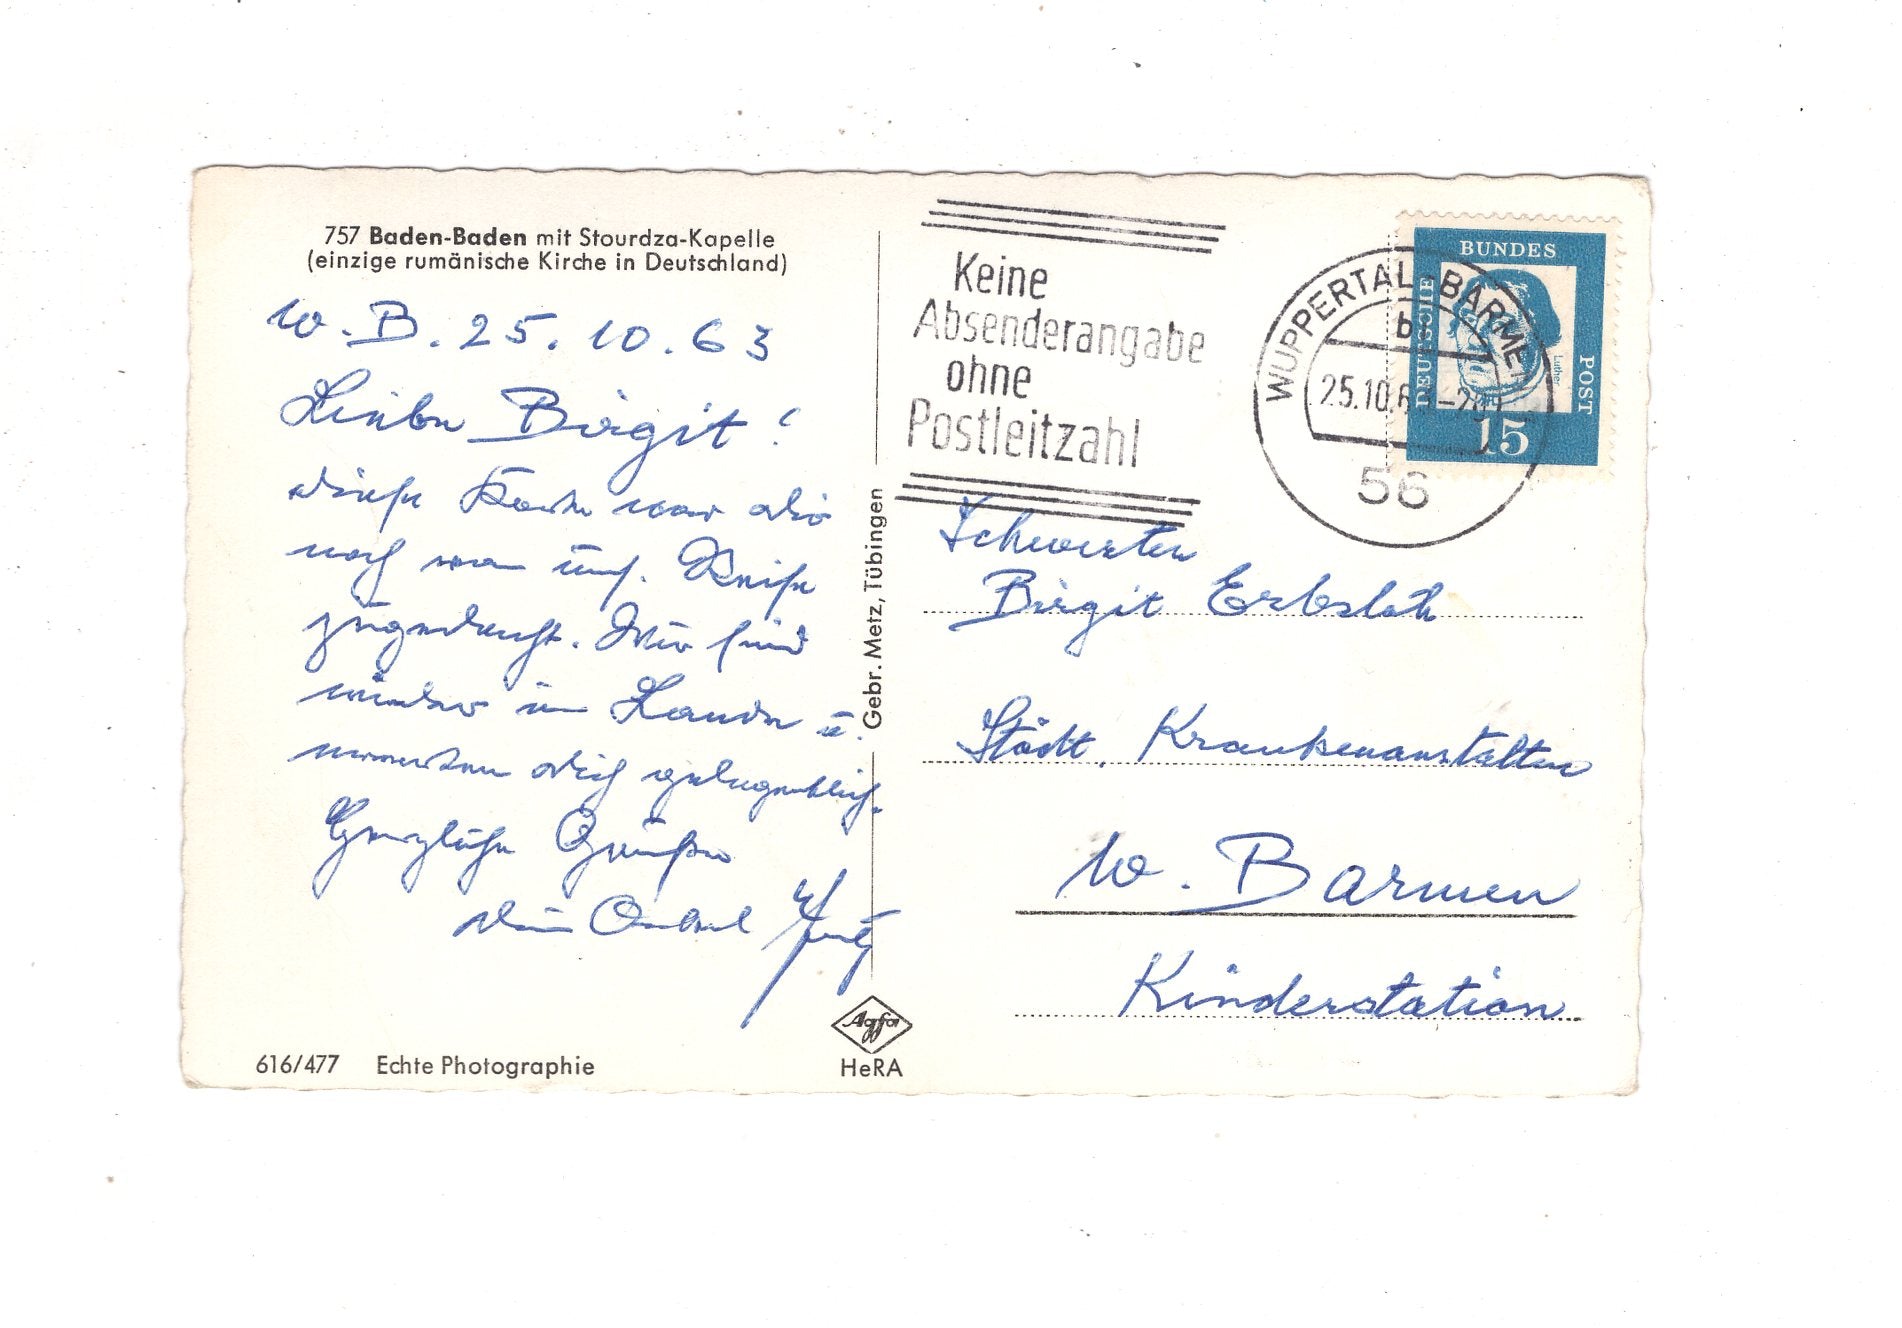 757 Baden-Baden mit Stourdza-Kapelle
(einzige rumänische Kirche in Deutschland)
W.-B. 25.10.63
Liebe Birgit!
diese Karte war dir
noch von uns. Reise
zugedacht. Wir sind
wieder im Lande u.
erwarten dich gelegentlich.
Herzliche Grüße
dein Onkel
616/477 Echte Photographie
Gebr. Metz, Tübingen
Agfa
HeRA
Keine
Absenderangabe
ohne
Postleitzahl
WUPPERTAL-BARMEN
b
25.10.63
56
DEUTSCHE BUNDES POST
Luther
15
Schwester
Birgit Erbslöh
Städt. Krankenanstalten
W. Barmen
Kinderstation